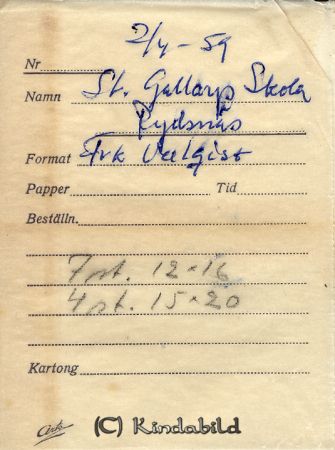 2/4-59
Nr
Namn St. Gallarp Skola
Rydsnäs
Format Frk
Papper Tid
Beställn.
7 st. 12×16
4 st. 15×20
Kartong
(C) Kindabild